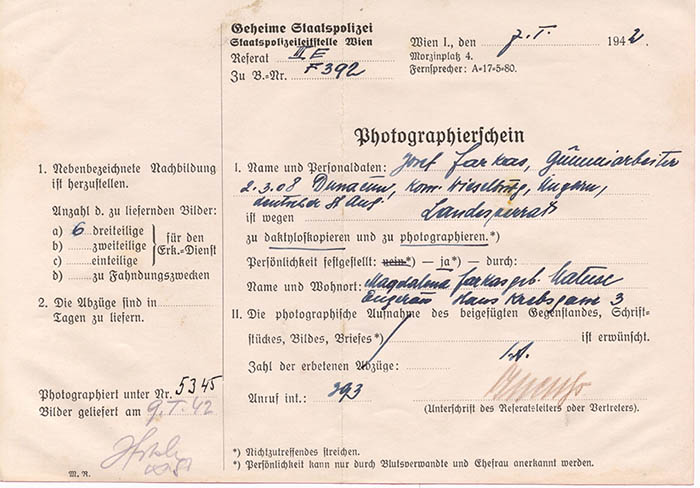 Geheime Staatspolizei
Staatspolizeileitstelle Wien
Referat III E
Zu B.=Nr. F392
Wien I., den 7. I. 1942
Morzinplatz 4.
Fernsprecher: A=17=5=80.
Photographierschein
1. Nebenbezeichnete Nachbildung
ist herzustellen.
Anzahl d. zu liefernden Bilder:
a) 6 dreiteilige
b) zweiteilige
c) einteilige
für den
Erk.=Dienst
d) zu Fahndungszwecken
2. Die Abzüge sind in
Tagen zu liefern.
Photographiert unter Nr. 5345
Bilder geliefert am 9. I. 42
M. R.
I. Name und Personaldaten: Josef Farkas, Gummiarbeiter
2.3.08 Kom. Wieselburg, Ungarn,
deutscher St. Ang.
ist wegen Landesverrat
zu daktyloskopieren und zu photographieren.*)
Persönlichkeit festgestellt: nein*) — ja*) — durch:
Name und Wohnort: Magdalena Farkas geb.
Engerau Hans Krebsgasse 3
II. Die photographische Aufnahme des beigefügten Gegenstandes, Schrift=
stückes, Bildes, Briefes*) ist erwünscht.
Zahl der erbetenen Abzüge:
I.A.
Anruf int.: 393
(Unterschrift des Referatsleiters oder Vertreters).
*) Nichtzutreffendes streichen.
*) Persönlichkeit kann nur durch Blutsverwandte und Ehefrau anerkannt werden.